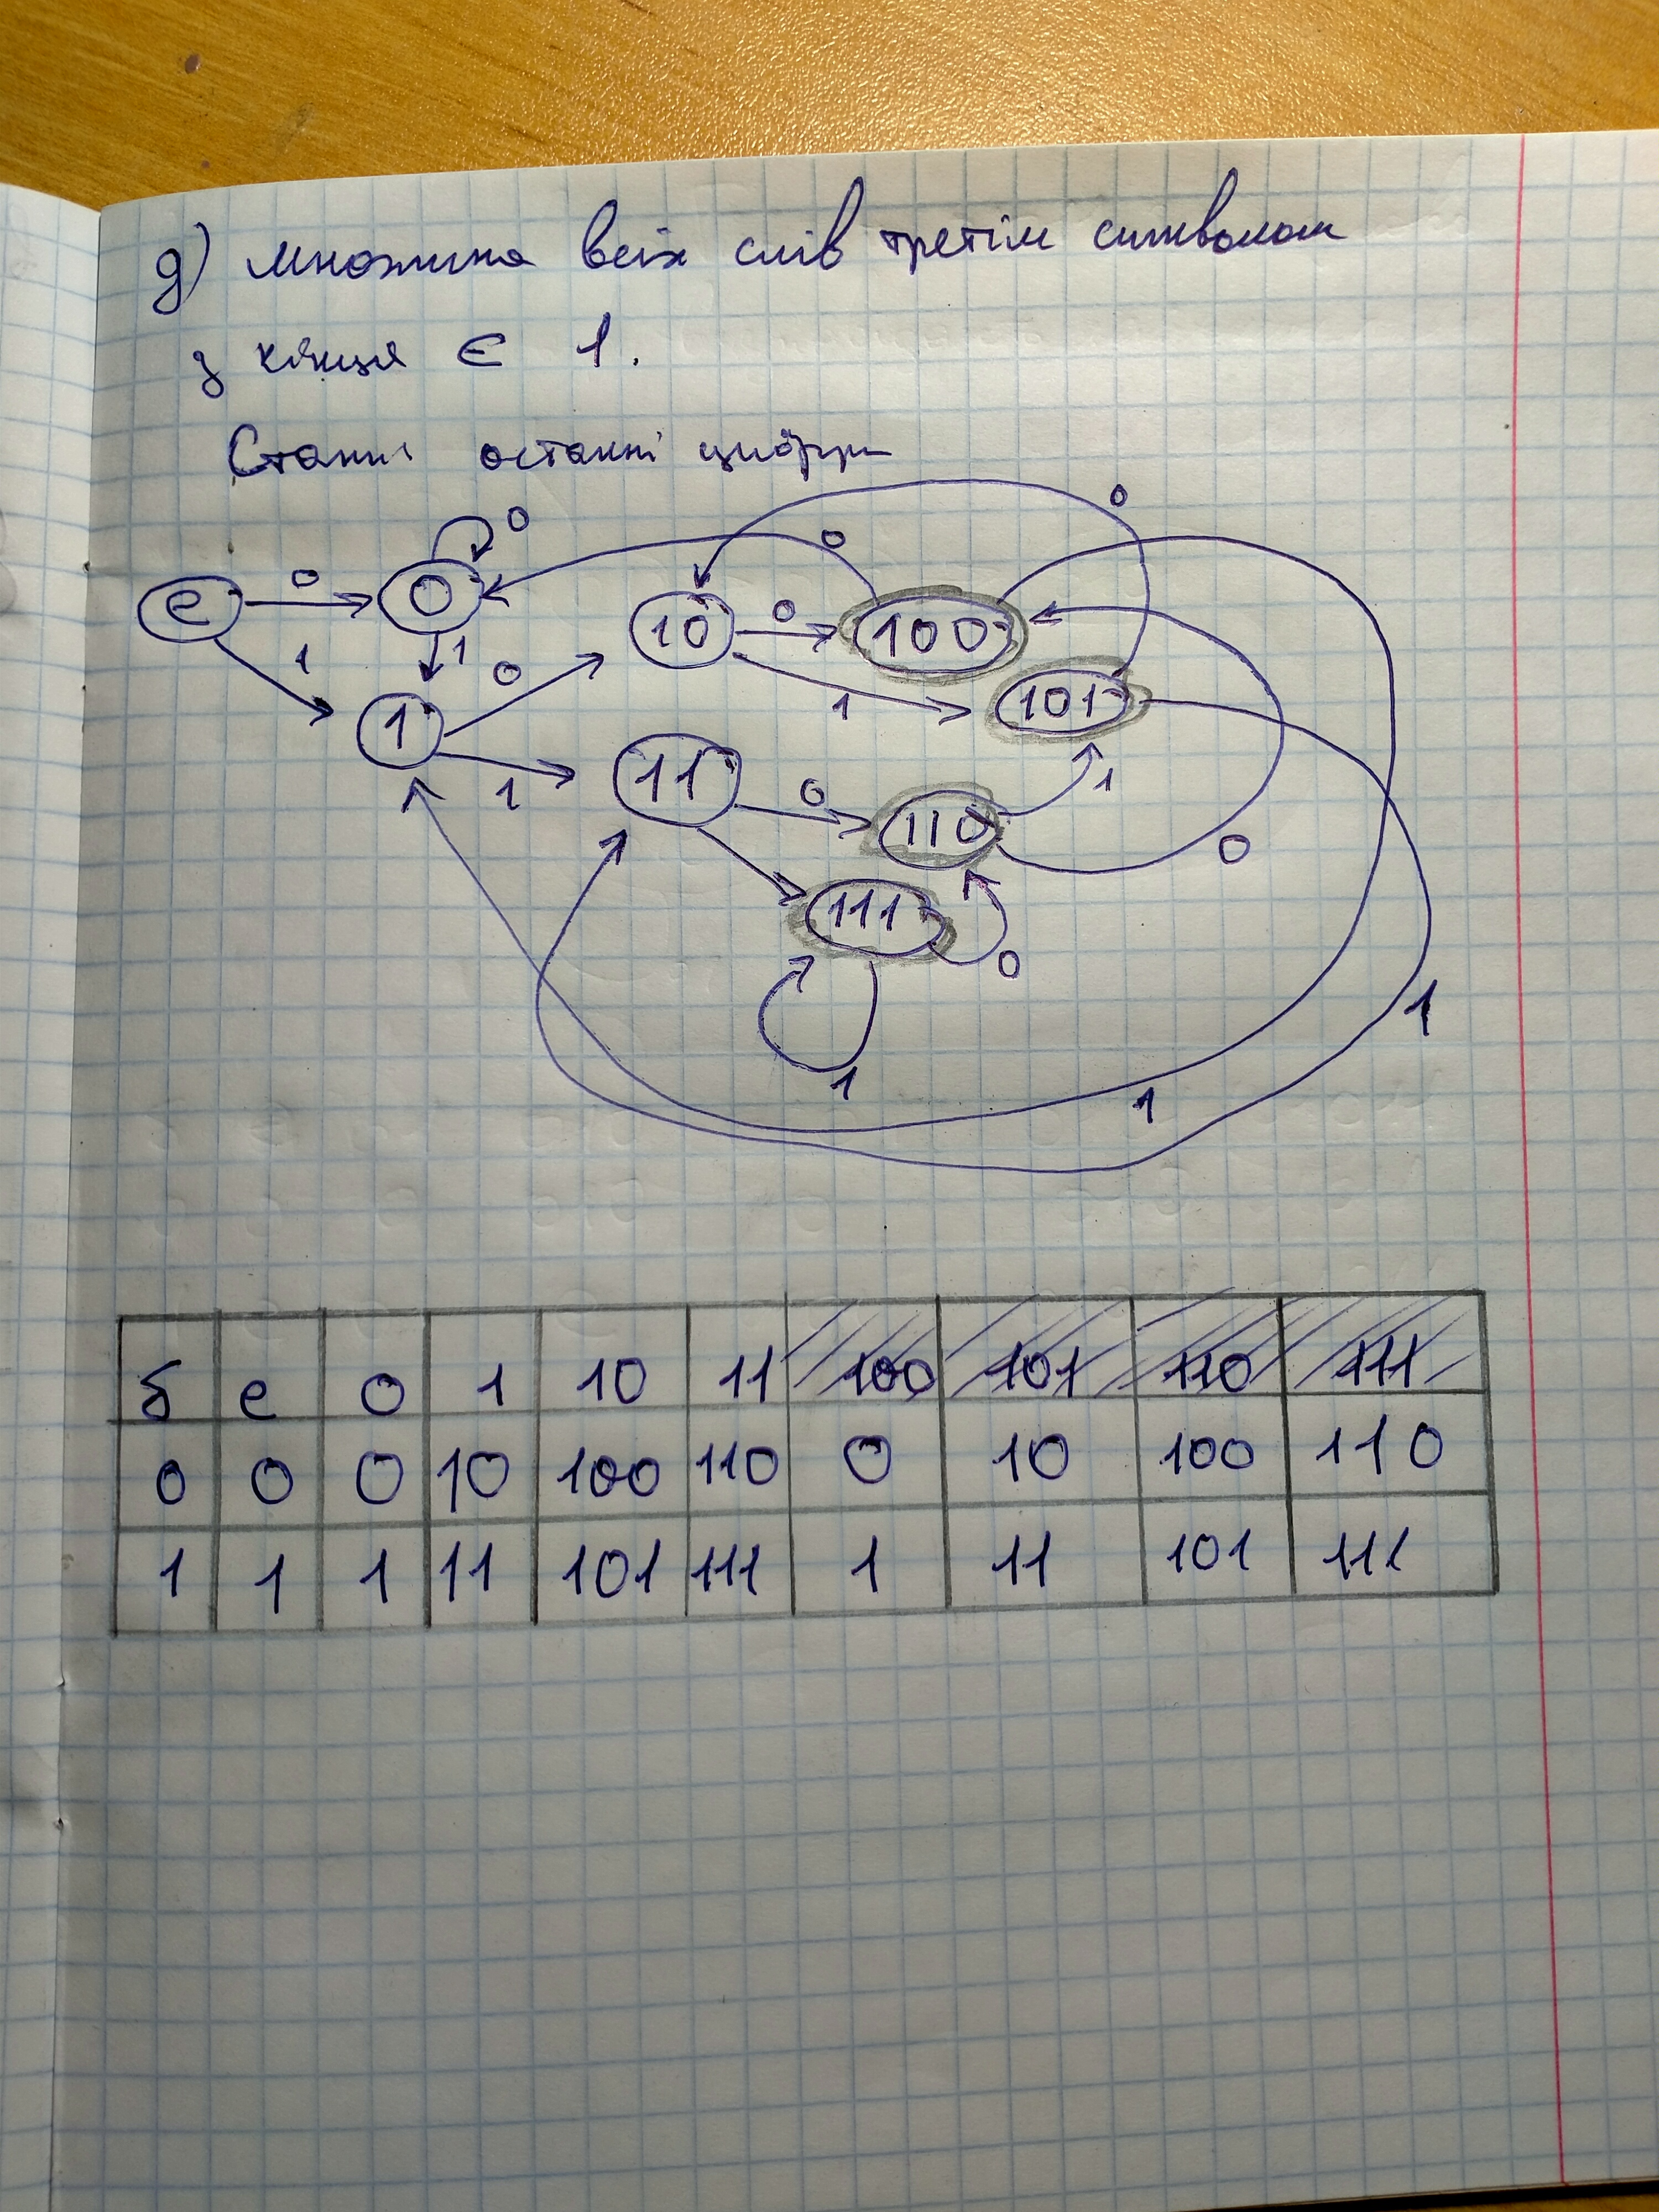 д) множина всіх слів третім символом
з кінця є 1.
Стани останні цифри
0 0 0
e 0 0 10 0 100
1 1 0 1 101
1 1 11 0 110 1 0
111 0
1 1 1
б e 0 1 10 11 100 101 110 111
0 0 0 10 100 110 0 10 100 110
1 1 1 11 101 111 1 11 101 111